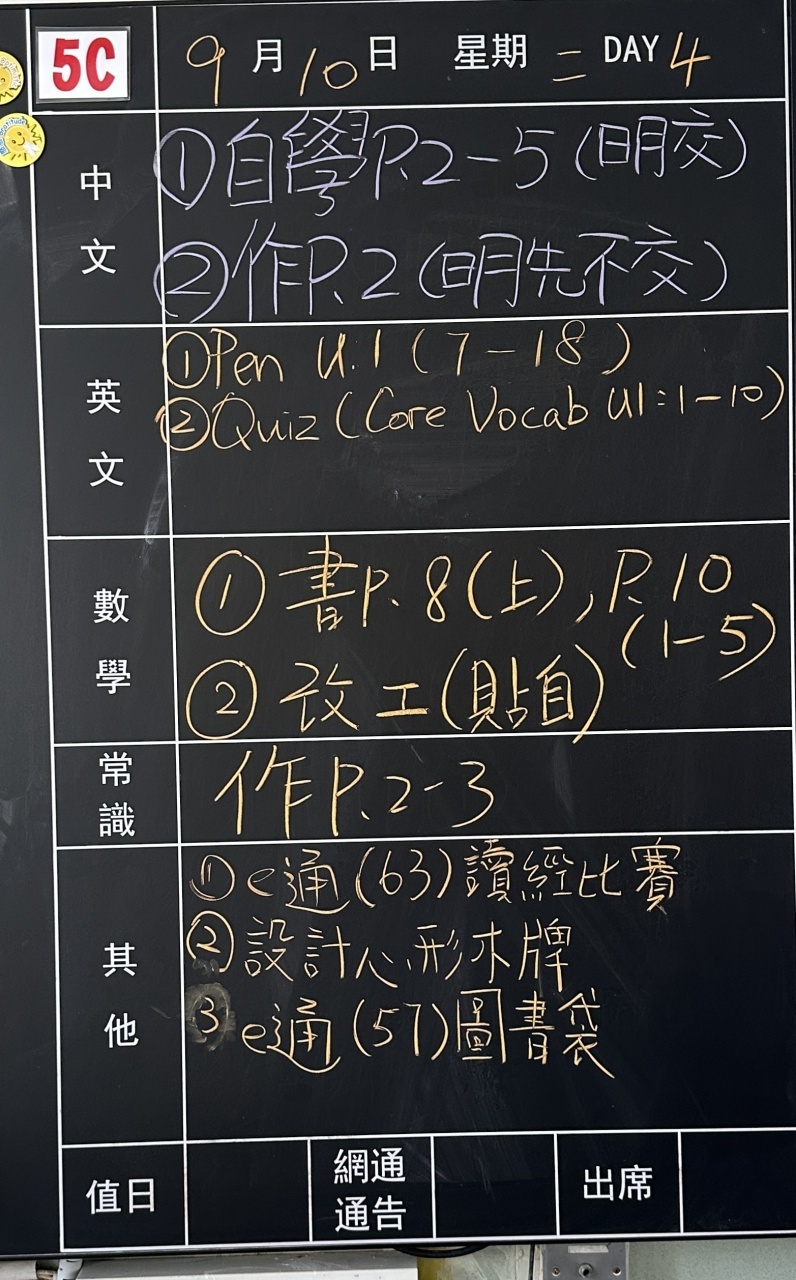 5C 9月10日 星期二 DAY 4
中文
①自學P.2-5(明交)
②作P.2(明先不交)
英文
①Pen U.1(7-18)
②Quiz(Core Vocab U1:1-10)
數學
①書P.8(上), P.10
(1-5)
②改工(貼自)
常識
作P.2-3
其他
①e通(63)讀經比賽
②設計心形木牌
③e通(57)圖書袋
值日
網通
通告
出席